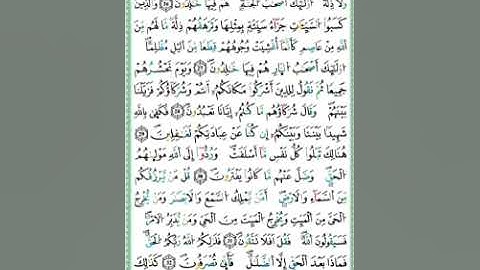 وَلَا ذِلَّةٌ أُو۟لَٰٓئِكَ أَصْحَٰبُ ٱلْجَنَّةِ هُمْ فِيهَا خَٰلِدُونَ ۝٢٦ وَٱلَّذِينَ
كَسَبُوا۟ ٱلسَّيِّـَٔاتِ جَزَآءُ سَيِّئَةٍۭ بِمِثْلِهَا وَتَرْهَقُهُمْ ذِلَّةٌ مَّا لَهُم مِّنَ
ٱللَّهِ مِنْ عَاصِمٍ كَأَنَّمَآ أُغْشِيَتْ وُجُوهُهُمْ قِطَعًا مِّنَ ٱلَّيْلِ مُظْلِمًا
أُو۟لَٰٓئِكَ أَصْحَٰبُ ٱلنَّارِ هُمْ فِيهَا خَٰلِدُونَ ۝٢٧ وَيَوْمَ نَحْشُرُهُمْ
جَمِيعًا ثُمَّ نَقُولُ لِلَّذِينَ أَشْرَكُوا۟ مَكَانَكُمْ أَنتُمْ وَشُرَكَآؤُكُمْ فَزَيَّلْنَا
بَيْنَهُمْ وَقَالَ شُرَكَآؤُهُم مَّا كُنتُمْ إِيَّانَا تَعْبُدُونَ ۝٢٨ فَكَفَىٰ بِٱللَّهِ
شَهِيدًۢا بَيْنَنَا وَبَيْنَكُمْ إِن كُنَّا عَنْ عِبَادَتِكُمْ لَغَٰفِلِينَ ۝٢٩
هُنَالِكَ تَبْلُوا۟ كُلُّ نَفْسٍ مَّآ أَسْلَفَتْ وَرُدُّوٓا۟ إِلَى ٱللَّهِ مَوْلَىٰهُمُ
ٱلْحَقِّ وَضَلَّ عَنْهُم مَّا كَانُوا۟ يَفْتَرُونَ ۝٣٠ قُلْ مَن يَرْزُقُكُم
مِّنَ ٱلسَّمَآءِ وَٱلْأَرْضِ أَمَّن يَمْلِكُ ٱلسَّمْعَ وَٱلْأَبْصَٰرَ وَمَن يُخْرِجُ
ٱلْحَىَّ مِنَ ٱلْمَيِّتِ وَيُخْرِجُ ٱلْمَيِّتَ مِنَ ٱلْحَىِّ وَمَن يُدَبِّرُ ٱلْأَمْرَ
فَسَيَقُولُونَ ٱللَّهُ فَقُلْ أَفَلَا تَتَّقُونَ ۝٣١ فَذَٰلِكُمُ ٱللَّهُ رَبُّكُمُ ٱلْحَقُّ
فَمَاذَا بَعْدَ ٱلْحَقِّ إِلَّا ٱلضَّلَٰلُ فَأَنَّىٰ تُصْرَفُونَ ۝٣٢ كَذَٰلِكَ